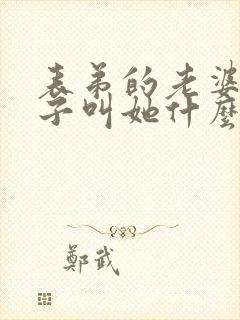 表弟的老婆
子叫她什麼
鄭武